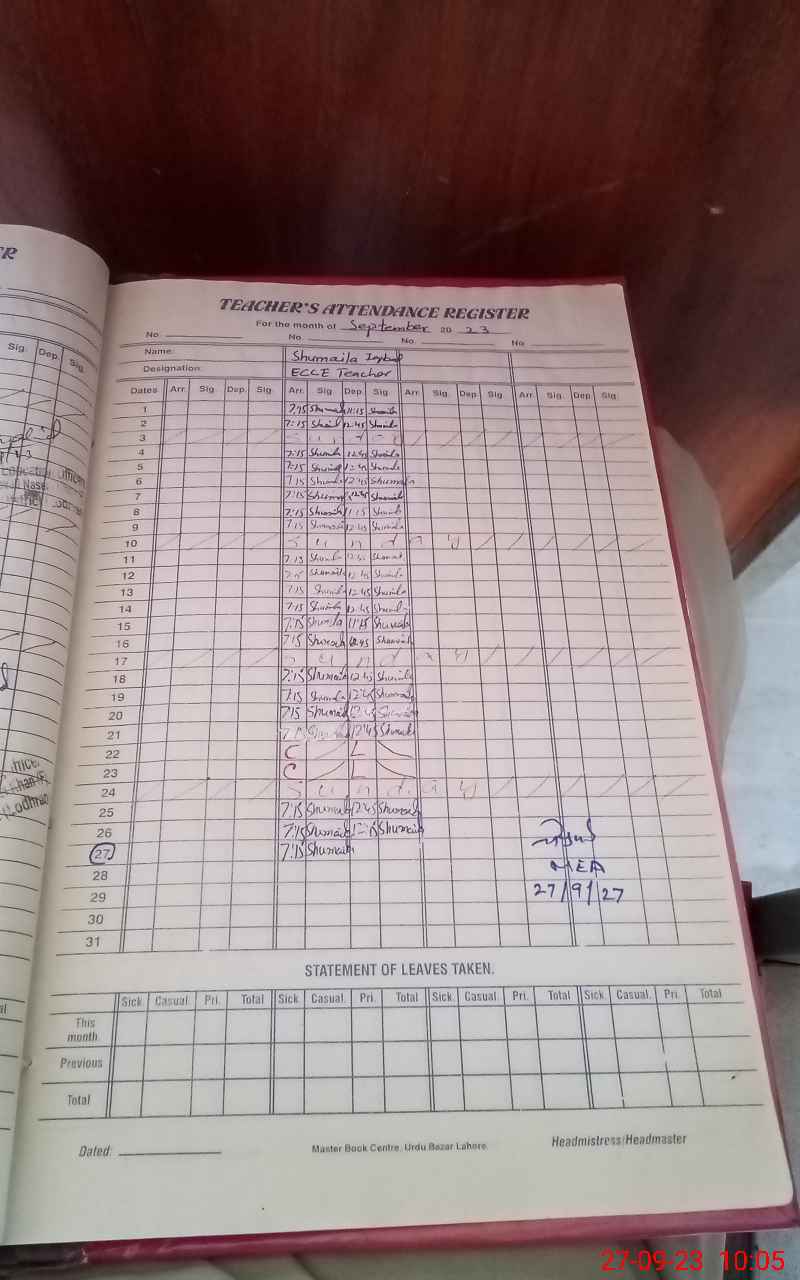 TEACHER'S ATTENDANCE REGISTER
For the month of September 20 23
No. No. No. No.
Name: Shumaila Iqbal
Designation: ECCE Teacher
Dates Arr. Sig. Dep. Sig. Arr. Sig. Dep. Sig. Arr. Sig. Dep. Sig. Arr. Sig. Dep. Sig.
1 7:15 Shumaila 11:15 Shumaila
2 7:15 12:45 Shumaila
3 Sunday
4 7:15 Shumaila 12:45 Shumaila
5 7:15 Shumaila 12:45 Shumaila
6 7:15 Shumaila 12:45 Shumaila
7 7:15 Shumaila 12:45 Shumaila
8 7:15 Shumaila 11:15 Shumaila
9 7:15 Shumaila 12:45 Shumaila
10 Sunday
11 7:15 Shumaila 12:45 Shumaila
12 7:15 Shumaila 12:45 Shumaila
13 7:15 Shumaila 12:45 Shumaila
14 7:15 Shumaila 12:45 Shumaila
15 7:15 Shumaila 11:15 Shumaila
16 7:15 Shumaila 12:45 Shumaila
17 Sunday
18 7:15 Shumaila 12:45 Shumaila
19 7:15 Shumaila 12:45 Shumaila
20 7:15 Shumaila 12:45 Shumaila
21 7:15 Shumaila 12:45 Shumaila
22 C L
23 C L
24 Sunday
25 7:15 Shumaila 12:45 Shumaila
26 7:15 Shumaila Shumaila
27 7:15 Shumaila
28 MEA
29 27/9/27
30
31
STATEMENT OF LEAVES TAKEN.
Sick. Casual. Pri. Total Sick. Casual. Pri. Total Sick. Casual. Pri. Total Sick. Casual. Pri. Total
This month
Previous
Total
Dated: Master Book Centre, Urdu Bazar Lahore. Headmistress/Headmaster
27-09-23 10:05